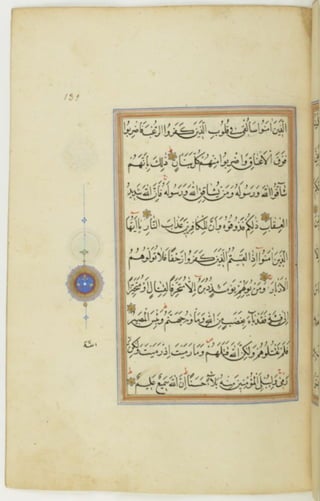 الذين امنوا سالقي في قلوب الذين كفروا الرعب فاضربوا
فوق الاعناق واضربوا منهم كل بنان ذلك بانهم
شاقوا الله ورسوله ومن يشاقق الله ورسوله فان الله شديد
العقاب ذلكم فذوقوه وان للكافرين عذاب النار يا ايها
الذين امنوا اذا لقيتم الذين كفروا زحفا فلا تولوهم
الادبار ومن يولهم يومئذ دبره الا متحرفا لقتال او متحيزا
الى فئة فقد باء بغضب من الله وماواه جهنم وبئس المصير
فلم تقتلوهم ولكن الله قتلهم وما رميت اذ رميت ولكن
الله رمى وليبلي المؤمنين منه بلاء حسنا ان الله سميع عليم